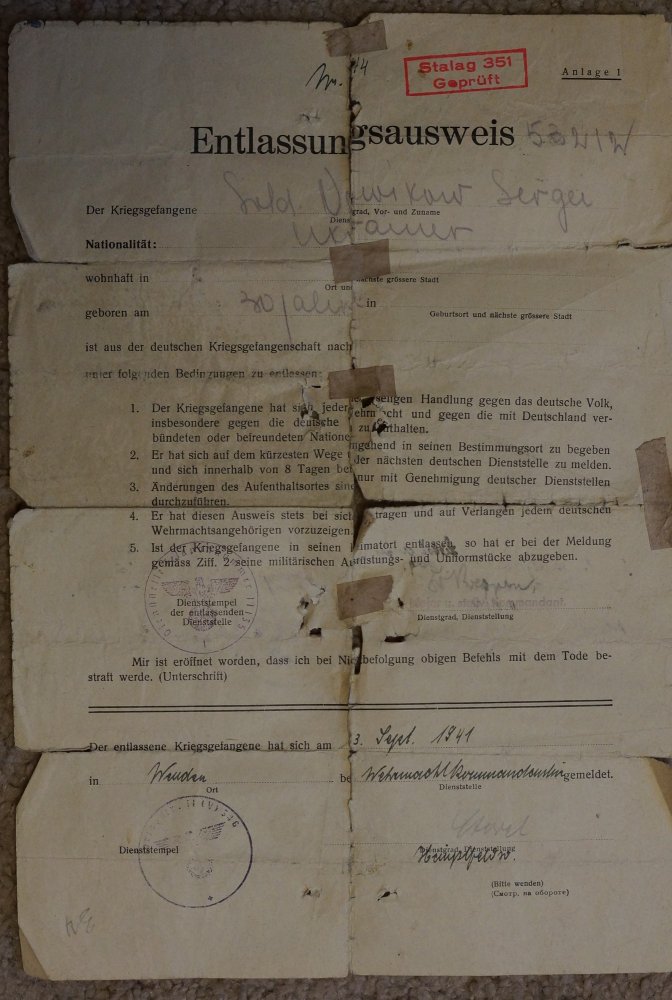 Stalag 351
Geprüft
Anlage 1
Entlassungsausweis 53212
Der Kriegsgefangene Sold. Nowikow Sergei
Dienstgrad, Vor- und Zuname
Nationalität: Ukrainer
wohnhaft in
Ort und nächste grössere Stadt
geboren am 30 in
Geburtsort und nächste grössere Stadt
ist aus der deutschen Kriegsgefangenschaft nach
unter folgenden Bedingungen zu entlassen:
1. Der Kriegsgefangene hat sich jeder Handlung gegen das deutsche Volk,
insbesondere gegen die deutsche Wehrmacht und gegen die mit Deutschland ver-
bündeten oder befreundeten Nationen zu enthalten.
2. Er hat sich auf dem kürzesten Wege umgehend in seinen Bestimmungsort zu begeben
und sich innerhalb von 8 Tagen bei der nächsten deutschen Dienststelle zu melden.
3. Änderungen des Aufenthaltsortes sind nur mit Genehmigung deutscher Dienststellen
durchzuführen.
4. Er hat diesen Ausweis stets bei sich zu tragen und auf Verlangen jedem deutschen
Wehrmachtsangehörigen vorzuzeigen.
5. Ist der Kriegsgefangene in seinen Heimatort entlassen, so hat er bei der Meldung
gemäss Ziff. 2 seine militärischen Ausrüstungs- und Uniformstücke abzugeben.
Dienststempel
der entlassenden
Dienststelle
Dienstgrad, Dienststellung
Mir ist eröffnet worden, dass ich bei Nichtbefolgung obigen Befehls mit dem Tode be-
straft werde. (Unterschrift)
Der entlassene Kriegsgefangene hat sich am 3. Sept. 1941
in Wenden bei Wehrmachtkommandantur gemeldet.
Ort
Dienststelle
Dienststempel
Dienstgrad, Dienststellung
(Bitte wenden)
(Смотр. на обороте)